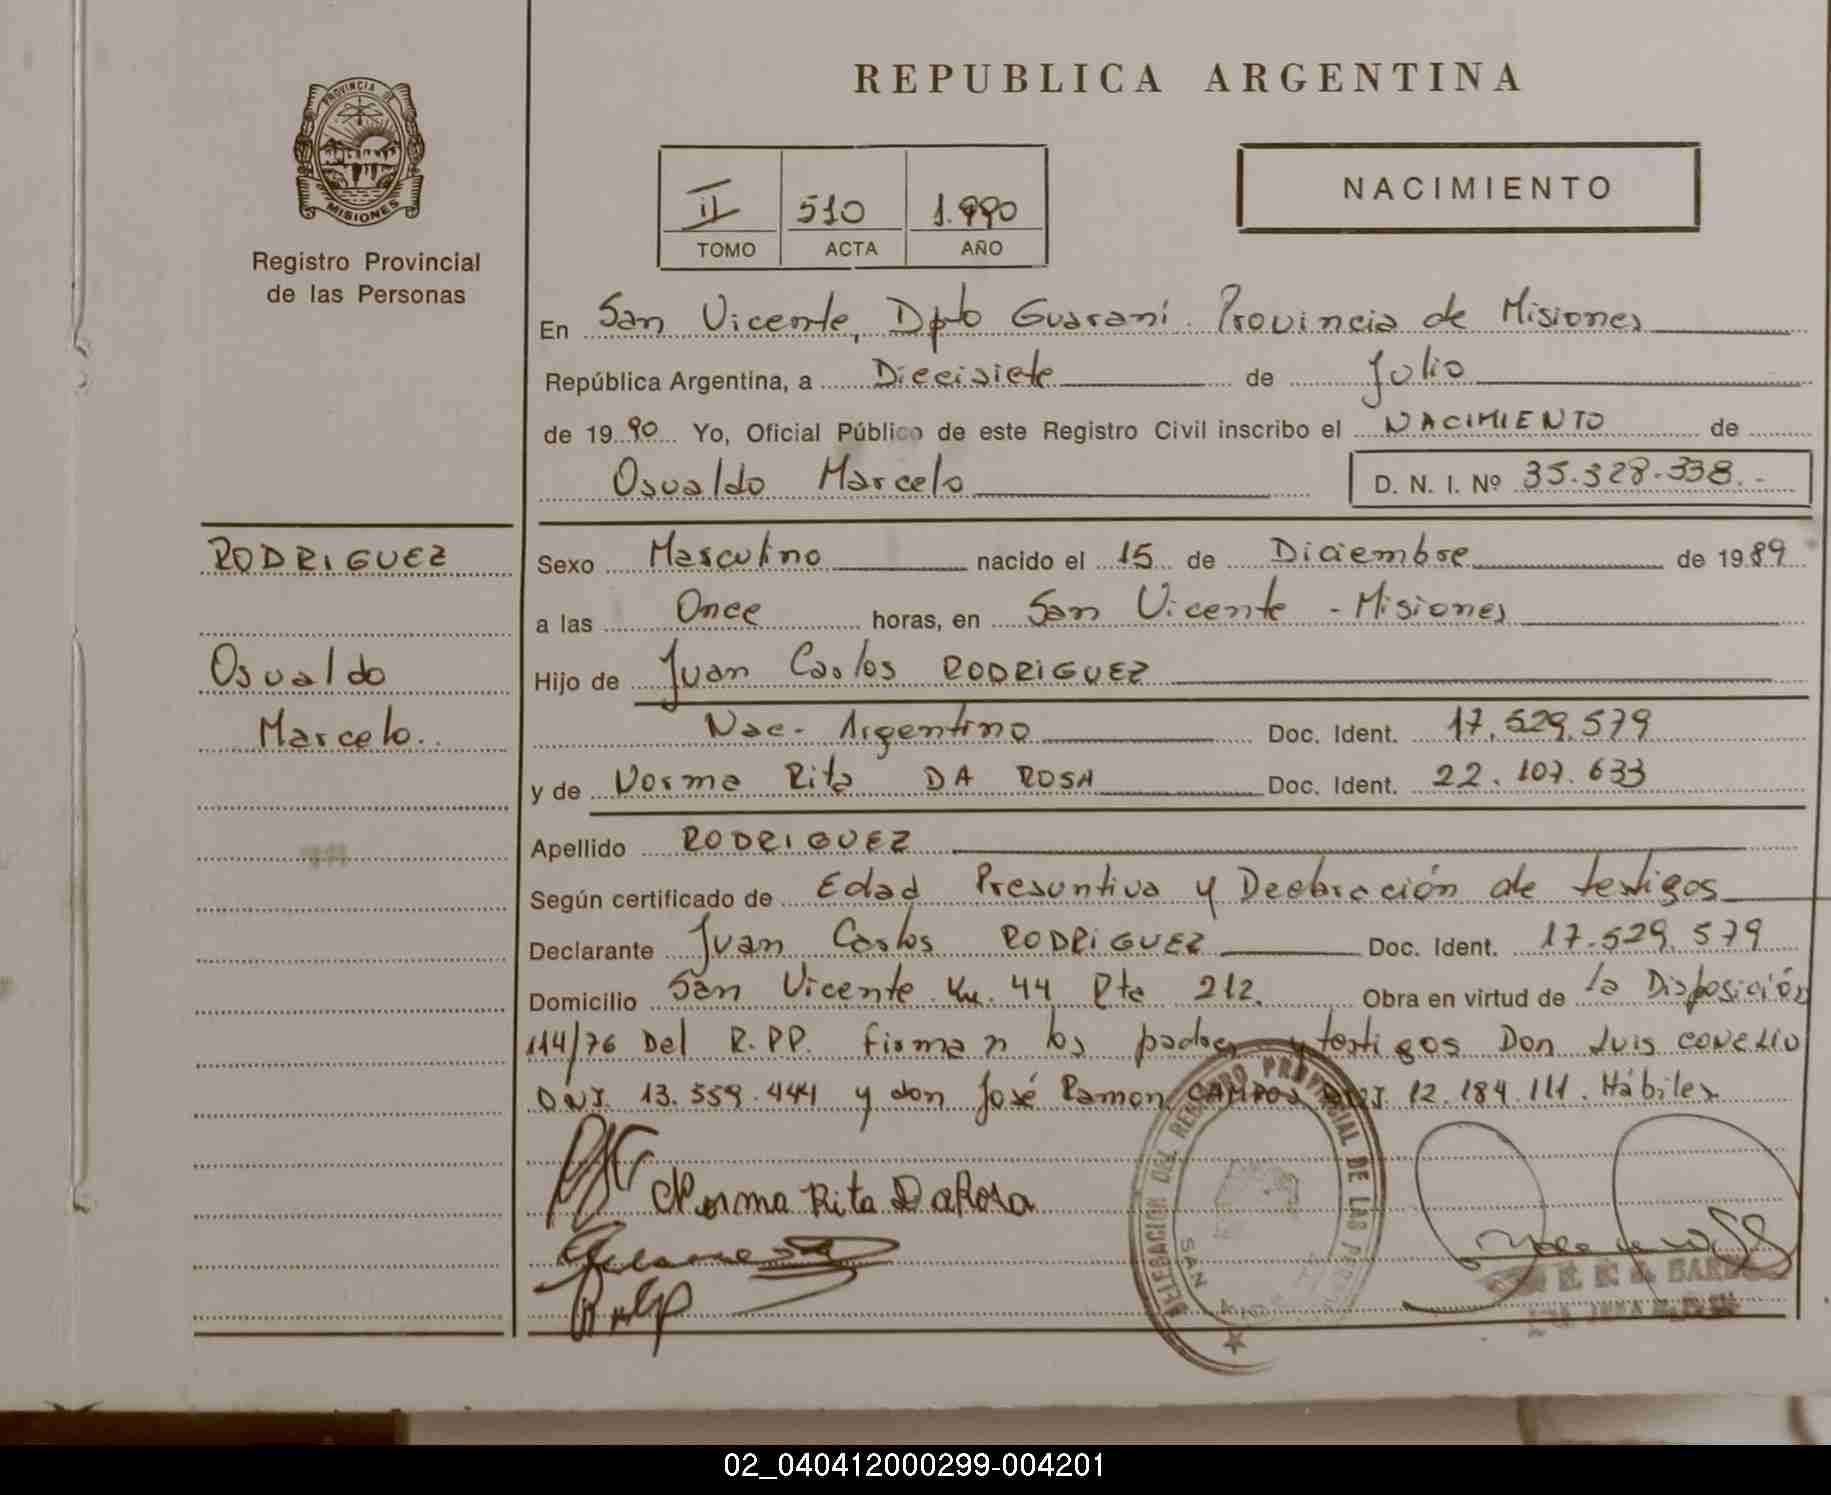 REPUBLICA ARGENTINA
PROVINCIA DE
MISIONES
Registro Provincial
de las Personas
NACIMIENTO
II 510 1.990
TOMO ACTA AÑO
En San Vicente, Dpto Guaraní. Provincia de Misiones
República Argentina, a Diecisiete de Julio
de 1990 Yo, Oficial Público de este Registro Civil inscribo el NACIMIENTO de
Osvaldo Marcelo D. N. I. Nº 35.328.338.-
RODRIGUEZ
Osvaldo
Marcelo.
Sexo Masculino nacido el 15 de Diciembre de 1989
a las Once horas, en San Vicente - Misiones
Hijo de Juan Carlos RODRIGUEZ
Nac. Argentino Doc. Ident. 17.529.579
y de Norma Rita DA ROSA Doc. Ident. 22.107.633
Apellido RODRIGUEZ
Según certificado de Edad Presuntiva y Declaración de testigos
Declarante Juan Carlos RODRIGUEZ Doc. Ident. 17.529.579
Domicilio San Vicente Km. 44 Rta 212. Obra en virtud de la Disposición
114/76 Del R.PP. firman los padres y testigos Don Luis
DNI. 13.559.444 y don José Ramon CAMPOS DNI. 12.184.111. Hábiles
Norma Rita DaRosa
DELEGACION DEL REGISTRO PROVINCIAL DE LAS
SAN
02_040412000299-004201